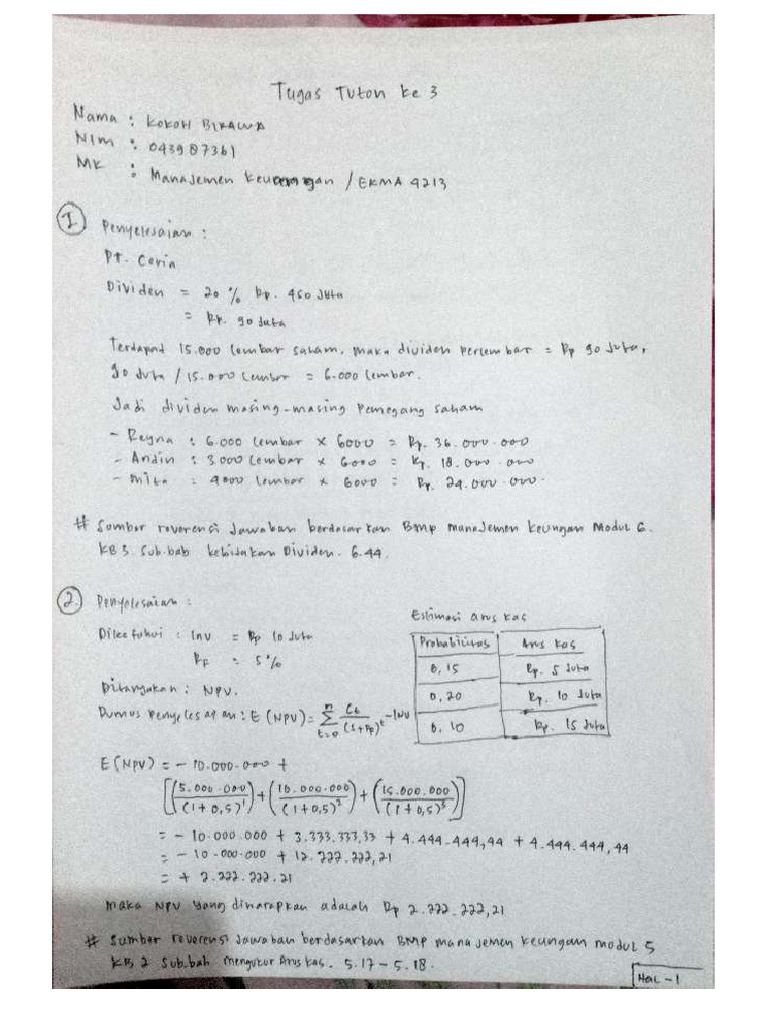 Tugas Tuton ke 3
Nama : KOKOH BIRAWA
NIM : 043987361
MK : Manajemen keuangan / EKMA 4213
1 Penyelesaian :
PT. Ceria
Dividen = 20 % Rp. 450 Juta
= Rp. 90 Juta
Terdapat 15.000 lembar saham, maka dividen perlembar = Rp 90 Juta,
90 Juta / 15.000 lembar = 6.000 lembar.
Jadi dividen masing-masing pemegang saham
- Reyna : 6.000 lembar x 6000 = Rp. 36.000.000
- Andin : 3000 lembar x 6000 = Rp. 18.000.000
- Mita : 4000 lembar x 6000 = Rp. 24.000.000.
# Sumber reverensi Jawaban berdasarkan BMP manajemen keungan Modul 6.
KB 3. Sub.bab kebijakan Dividen. 6.44.
2. Penyelesaian :
Diketahui : Inv = Rp 10 Juta
RF = 5%
Ditanyakan : NPV.
Rumus penyelesaian : E (NPV) = n Σ t=0 Ct / (1+RF)^t - INV
Estimasi arus kas
Probabilitas Arus Kas
0,15 Rp. 5 Juta
0,20 Rp. 10 Juta
0.10 Rp. 15 Juta
E (NPV) = - 10.000.000 +
[(5.000.000 / (1+0,5)^1) + (10.000.000 / (1+0,5)^2) + (15.000.000 / (1+0,5)^3)]
= - 10.000.000 + 3.333.333,33 + 4.444.444,44 + 4.444.444,44
= - 10.000.000 + 12.222.222,21
= + 2.222.222.21
maka NPV yang diharapkan adalah Rp 2.222.222,21
# Sumber reverensi Jawaban berdasarkan BMP manajemen keungan modul 5
KB 2 Sub.bab mengukur Arus kas. 5.17 - 5.18.
Hal - 1